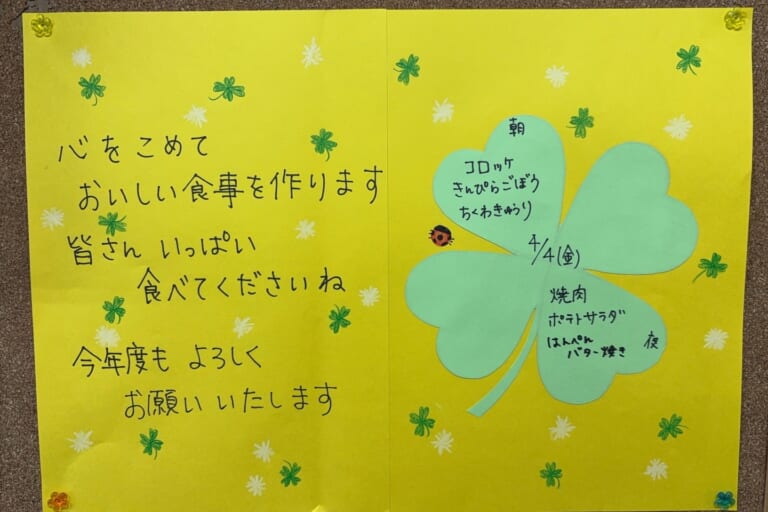 心をこめて
おいしい食事を作ります
皆さん いっぱい
食べてくださいね
今年度も よろしく
お願いいたします
朝
コロッケ
きんぴらごぼう
ちくわきゅうり
4/4(金)
焼肉
ポテトサラダ
はんぺん
バター焼き
夜